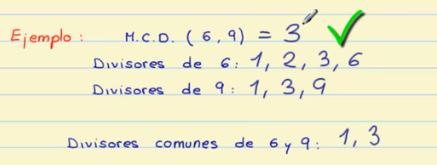 Ejemplo: M.C.D. (6,9) = 3
Divisores de 6: 1, 2, 3, 6
Divisores de 9: 1, 3, 9
Divisores comunes de 6 y 9: 1, 3